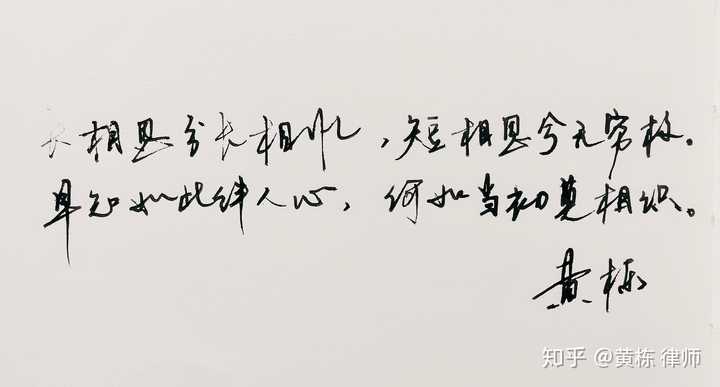 长相思兮长相忆，短相思兮无穷极。
早知如此绊人心，何如当初莫相识。
黄栋
知乎 @黄栋 律师